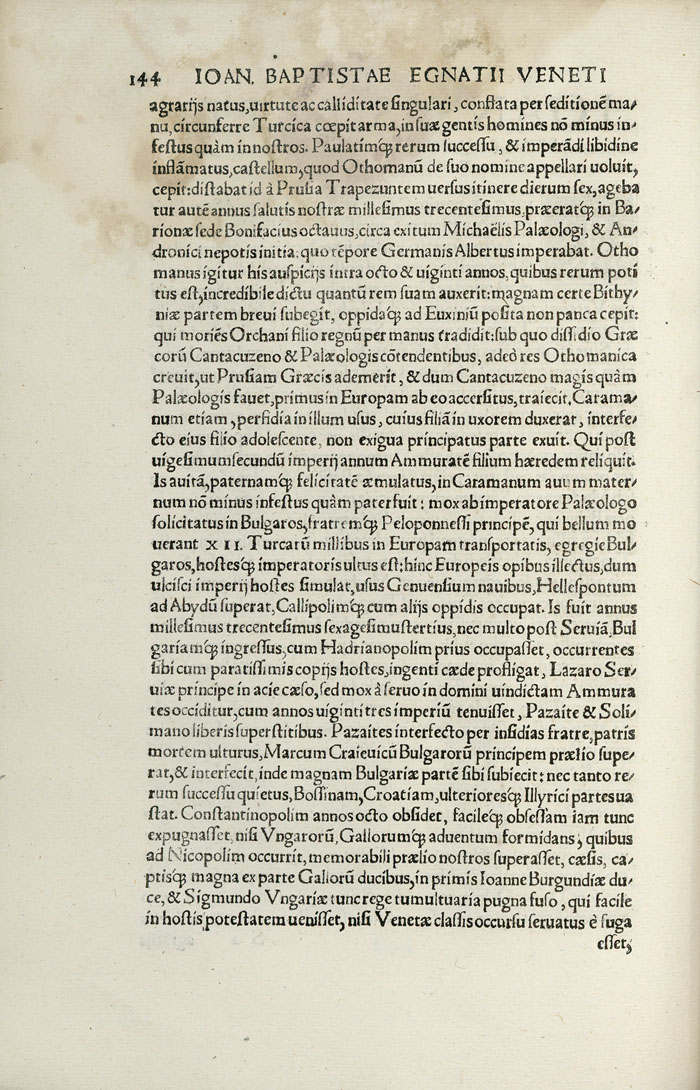 144 IOAN. BAPTISTAE EGNATII VENETI
agrarijs natus, uirtute ac calliditate singulari, conflata per seditionē ma⸗
nu, circunferre Turcica cœpit arma, in suæ gentis homines nō minus in⸗
festus quàm in nostros. Paulatimq́; rerum successu, & imperādi libidine
inflāmatus, castellum, quod Othomanū de suo nomine appellari uoluit,
cepit: distabat id à Prusia Trapezuntem uersus itinere dierum sex, ageba
tur autē annus salutis nostræ millesimus trecentesimus, præeratq́; in Ba⸗
rionæ sede Bonifacius octauus, circa exitum Michaëlis Palæologi, & An⸗
dronici nepotis initia. quo tēpore Germanis Albertus imperabat. Otho
manus igitur his auspicijs intra octo & uiginti annos, quibus rerum poti
tus est, incredibile dictu quantū rem suam auxerit: magnam certe Bithy⸗
niæ partem breui subegit, oppidaq́; ad Euxiniū posita non pauca cepit:
qui moriēs Orchani filio regnū per manus tradidit: sub quo dissidio Græ
corū Cantacuzeno & Palæologis cōtendentibus, adeò res Othomanica
creuit, ut Prusiam Græcis ademerit, & dum Cantacuzeno magis quàm
Palæologis fauet, primus in Europam ab eo accersitus, traiecit, Carama⸗
num etiam, perfidia in illum usus, cuius filiā in uxorem duxerat, interfe⸗
cto eius filio adolescente, non exigua principatus parte exuit. Qui post
uigesimumsecundū imperij annum Ammuratē filium hæredem reliquit.
Is auitā, paternamq́; felicitatē æmulatus, in Caramanum auum mater⸗
num nō minus infestus quàm pater fuit: mox ab imperatore Palæologo
solicitatus in Bulgaros, fratremq́; Peloponnessi principē, qui bellum mo
uerant XII. Turcarū millibus in Europam transportatis, egregie Bul⸗
garos, hostesq́; imperatoris ultus est: hinc Europeis opibus illectus, dum
ulcisci imperij hostes simulat, usus Genuensium nauibus, Hellespontum
ad Abydū superat, Callipolimq́; cum alijs oppidis occupat. Is fuit annus
millesimus trecentesimus sexagesimustertius, nec multo post Seruiā, Bul
gariamq́; ingressus, cum Hadrianopolim prius occupasset, occurrentes
sibi cum paratissimis copijs hostes, ingenti cæde profligat, Lazaro Ser⸗
uiæ principe in acie cæso, sed mox à seruo in domini uindictam Ammura
tes occiditur, cum annos uiginti tres imperiū tenuisset, Pazaite & Soli⸗
mano liberis superstitibus. Pazaites interfecto per insidias fratre, patris
mortem ulturus, Marcum Craieuicū Bulgarorū principem prælio supe⸗
rat, & interfecit, inde magnam Bulgariæ partē sibi subiecit: nec tanto re⸗
rum successu quietus, Bossinam, Croatiam, ulterioresq́; Illyrici partes ua
stat. Constantinopolim annos octo obsidet, facileq́; obsessam iam tunc
expugnasset, nisi Vngarorū, Gallorumq́; aduentum formidans, quibus
ad Nicopolim occurrit, memorabili prælio nostros superasset, cæsis, ca⸗
ptisq́; magna ex parte Gallorū ducibus, in primis Ioanne Burgundiæ du⸗
ce, & Sigmundo Vngariæ tunc rege tumultuaria pugna fuso, qui facile
in hostis potestatem uenisset, nisi Venetæ classis occursu seruatus è fuga
esset,